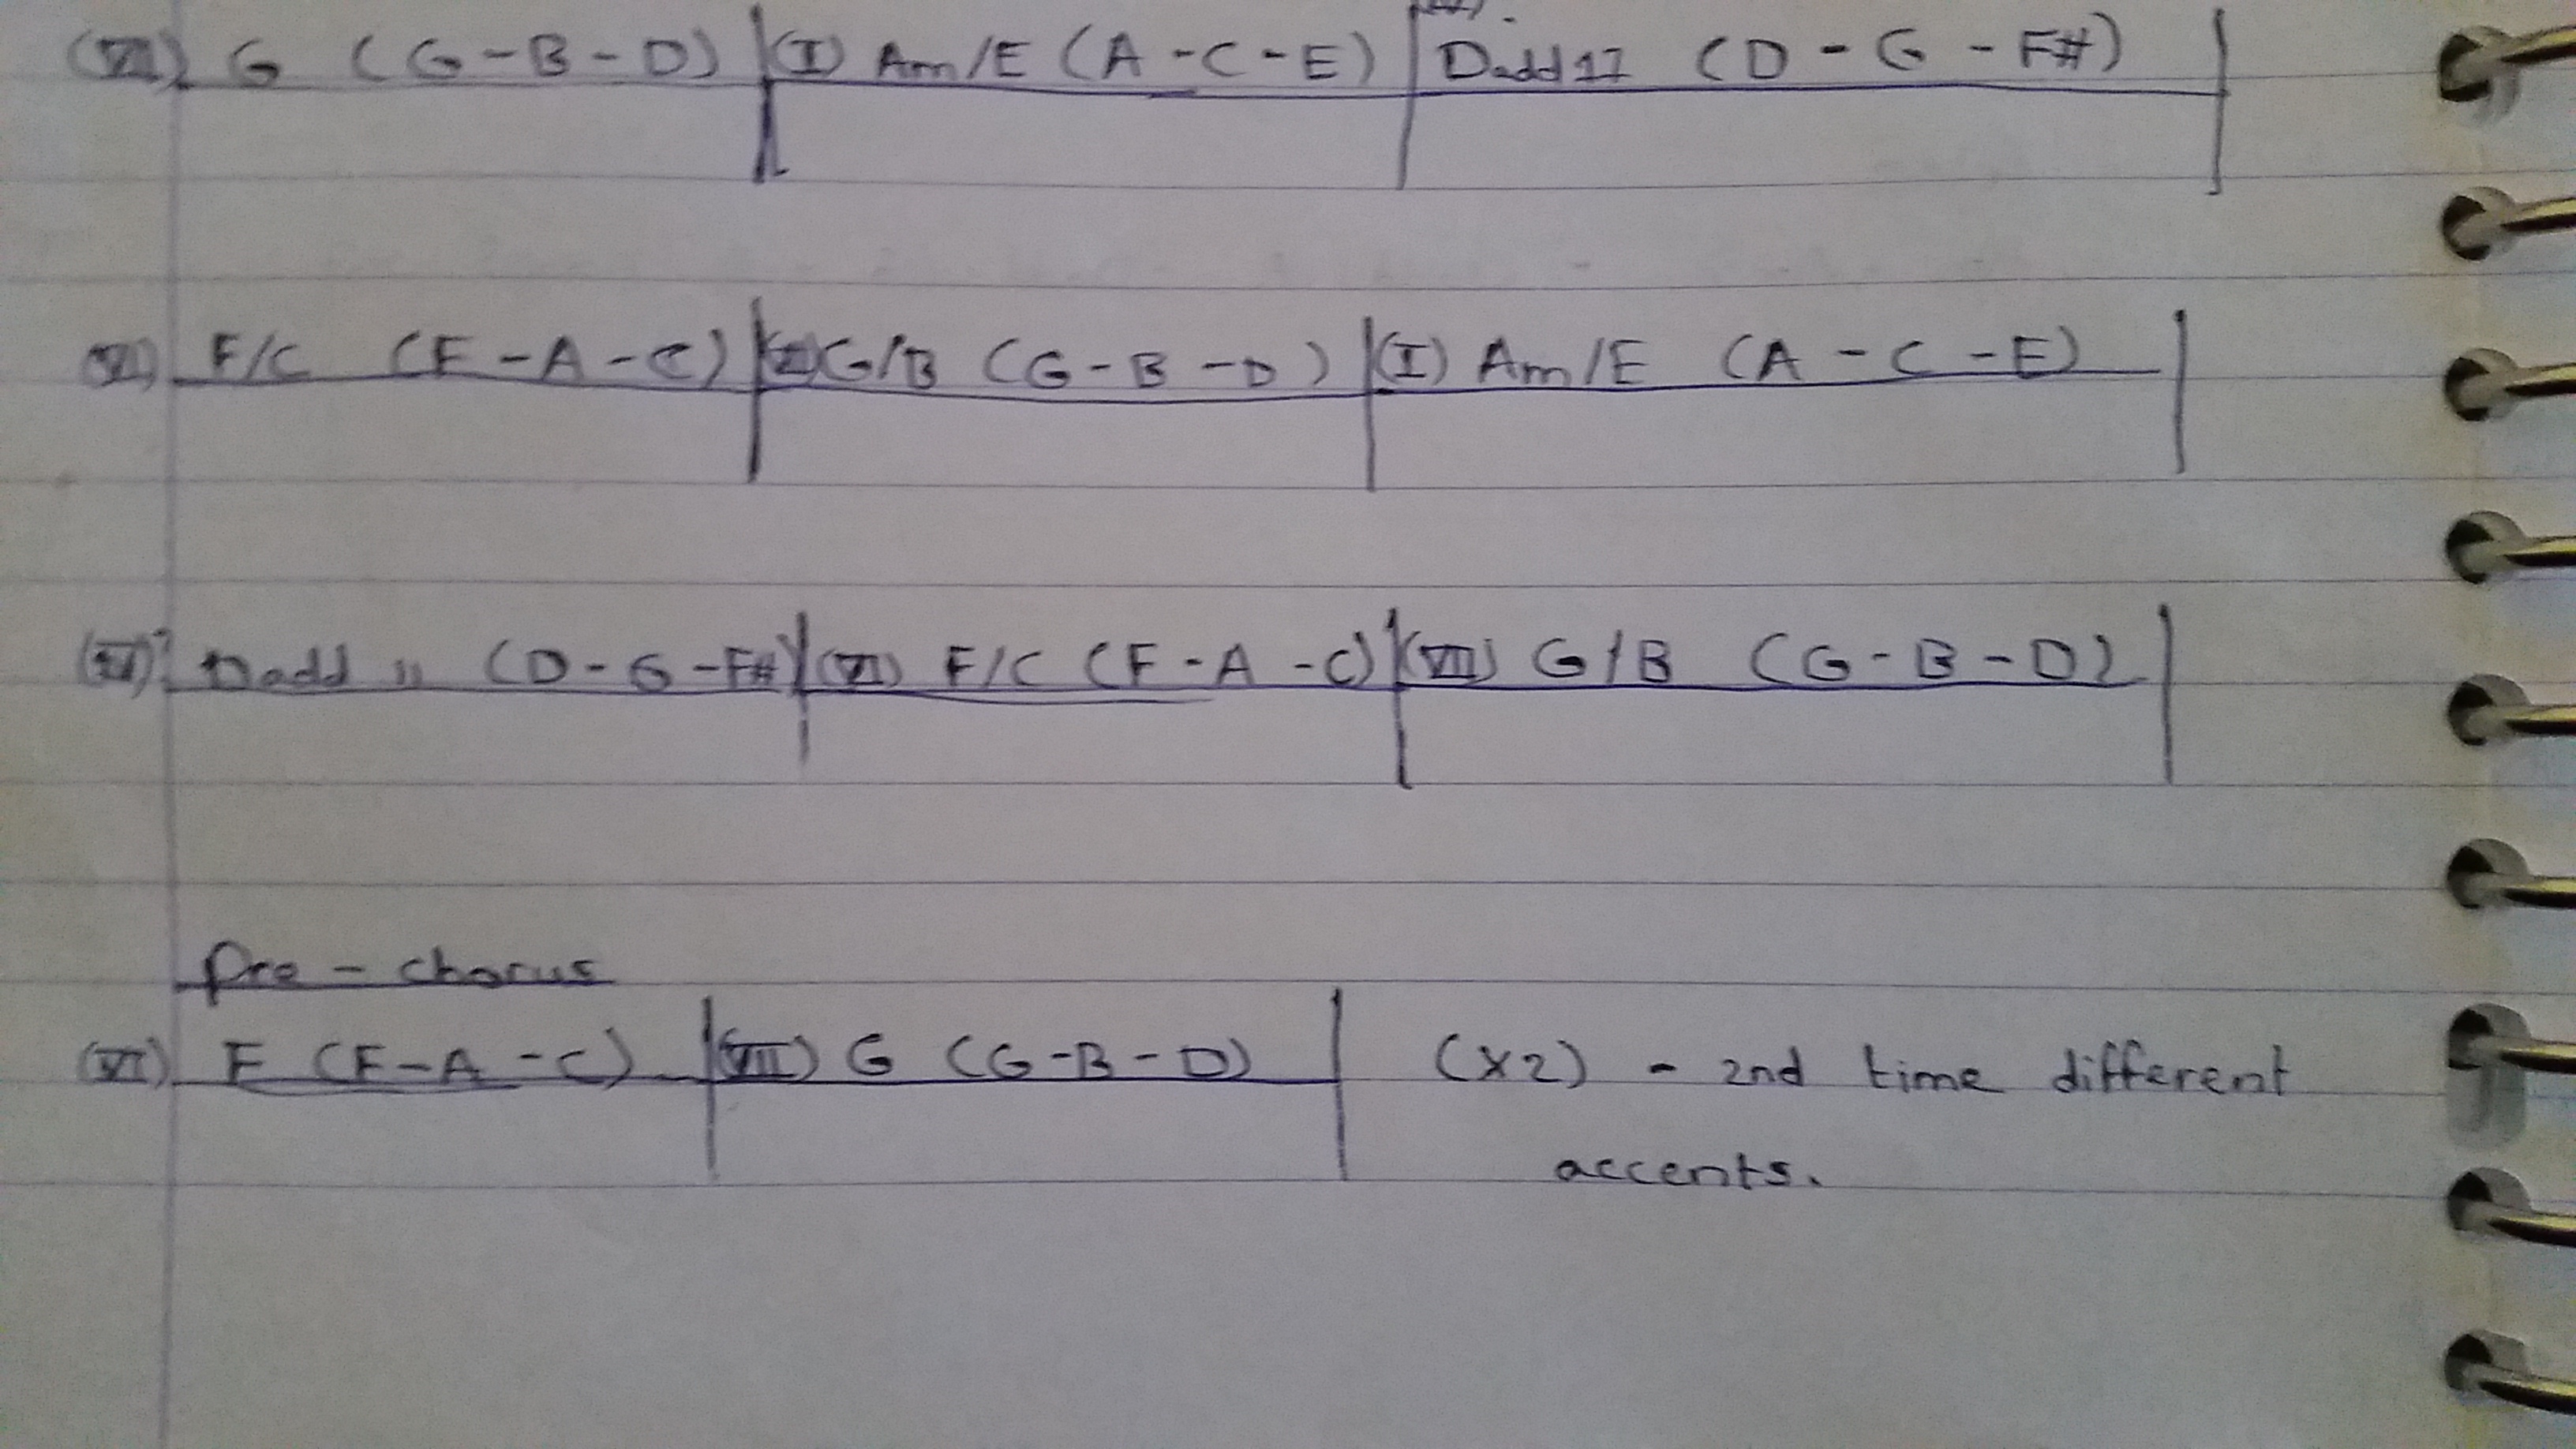 (VII) G (G-B-D) | (I) Am/E (A-C-E) | Dadd11 (D-G-F#) |
(VI) F/C (F-A-C) | G/B (G-B-D) | (I) Am/E (A-C-E) |
Dadd11 (D-G-F#) | (VI) F/C (F-A-C) | (VII) G/B (G-B-D) |
Pre-chorus
(VI) F (F-A-C) | (VII) G (G-B-D) | (x2) - 2nd time different
accents.